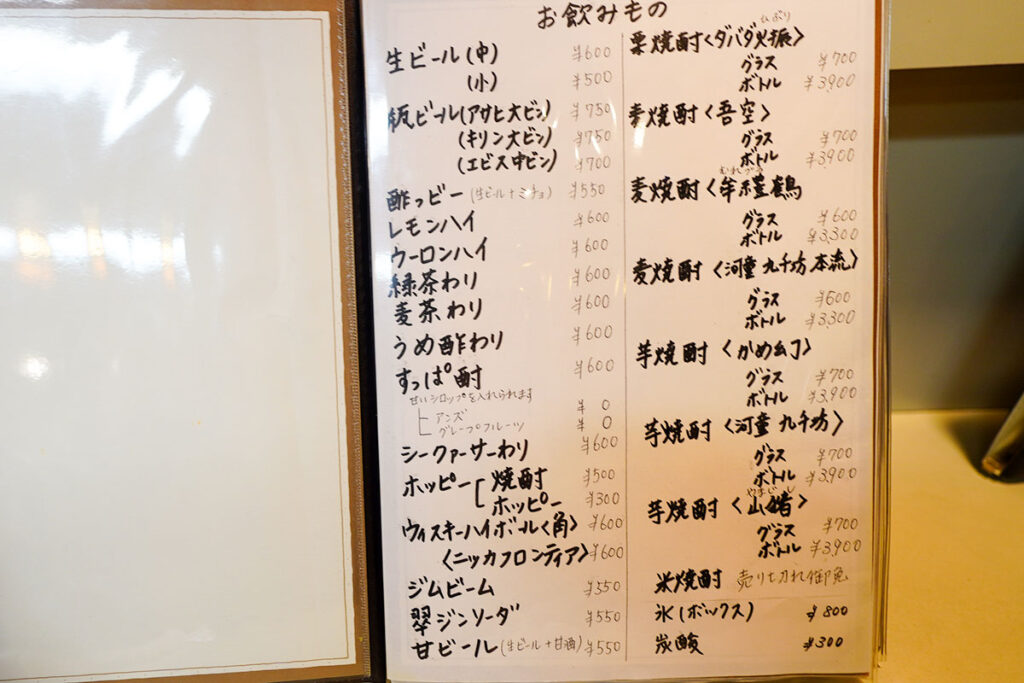 お飲みもの
生ビール(中) ¥600
(小) ¥500
瓶ビール(アサヒ大ビン) ¥750
(キリン大ビン) ¥750
(エビス中ビン) ¥700
酢っビー(生ビール+ミチョ) ¥550
レモンハイ ¥600
ウーロンハイ ¥600
緑茶わり ¥600
麦茶わり ¥600
うめ酢わり ¥600
すっぱ酎 ¥600
甘いシロップを入れられます
アンズ ¥0
グレープフルーツ ¥0
シークァーサーわり ¥600
ホッピー 焼酎 ¥500
ホッピー ¥300
ウィスキーハイボール〈角〉 ¥600
〈ニッカフロンティア〉 ¥600
ジムビーム ¥550
翠ジンソーダ ¥550
甘ビール(生ビール+甘酒) ¥550
ひぶり
栗焼酎〈ダバダ火振〉
グラス ¥700
ボトル ¥3,900
麦焼酎〈吾空〉
グラス ¥700
ボトル ¥3,900
麦焼酎〈牟禮鶴
グラス ¥600
ボトル ¥3,300
麦焼酎〈河童 九千坊 本流〉
グラス ¥600
ボトル ¥3,300
芋焼酎〈かめ幻〉
グラス ¥700
ボトル ¥3,900
芋焼酎〈河童 九千坊〉
グラス ¥700
ボトル ¥3,900
芋焼酎〈山猪〉
グラス ¥700
ボトル ¥3,900
米焼酎 売り切れ御免
氷(ボックス) ¥800
炭酸 ¥300